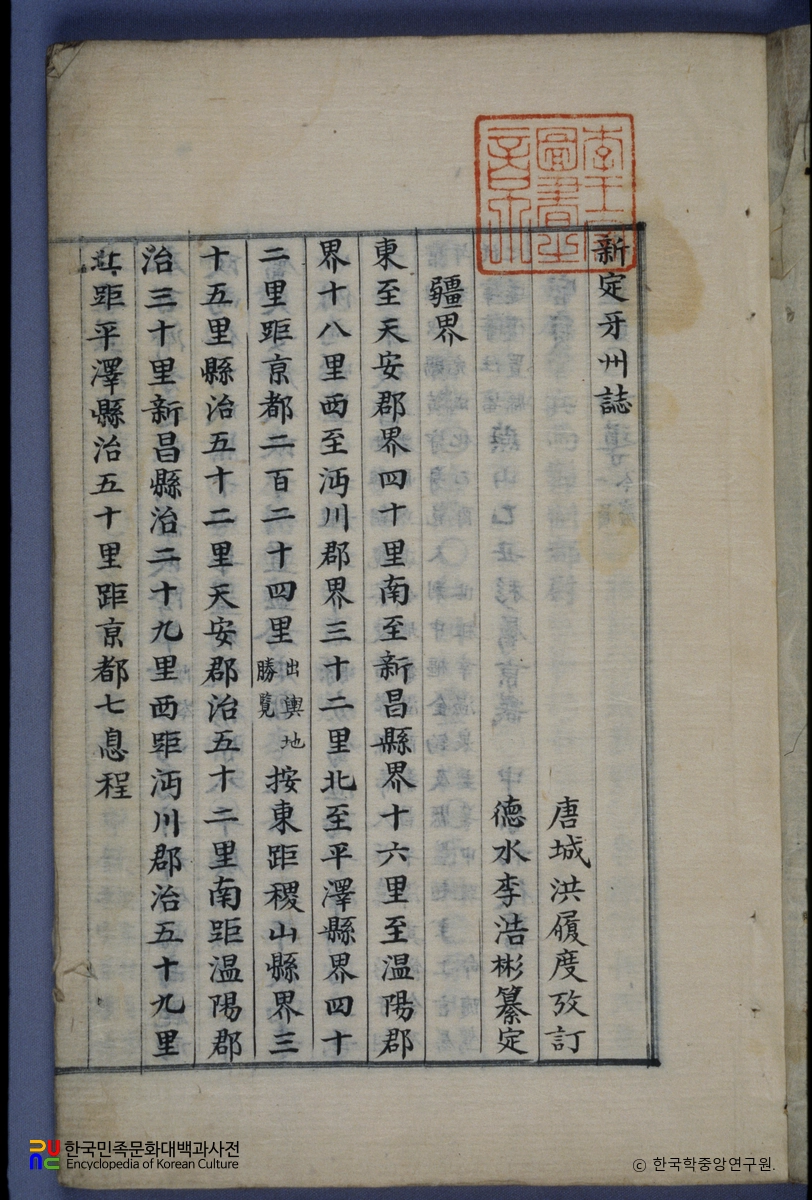 新定牙州誌
唐城洪履度攷訂
德水李浩彬纂定
疆界
東至天安郡界四十里南至新昌縣界十六里至温陽郡
界十八里西至沔川郡界三十二里北至平澤縣界四十
二里距京都二百二十四里出輿地勝覽按東距稷山縣界三
十五里縣治五十二里天安郡治五十二里南距温陽郡
治三十里新昌縣治二十九里西距沔川郡治五十九里
北距平澤縣治五十里距京都七息程
李王家圖書之章
한국민족문화대백과사전
Encyclopedia of Korean Culture
© 한국학중앙연구원.